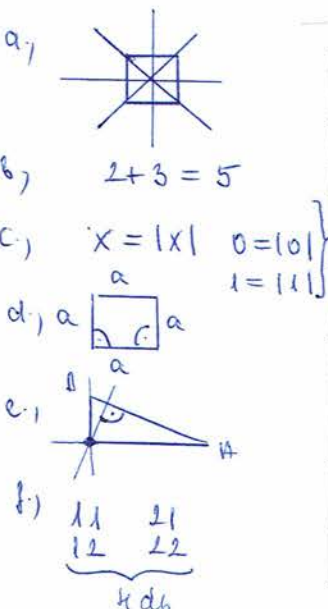 a.,
b, 2+3=5
c., x=|x| 0=|0|
1=|1|
a
d., a a
a
e., B
A
f.) 11 21
12 22
4 db